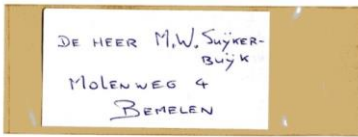 DE HEER M.W. SUŸKER-
BUŸK
MOLENWEG 4
BEMELEN